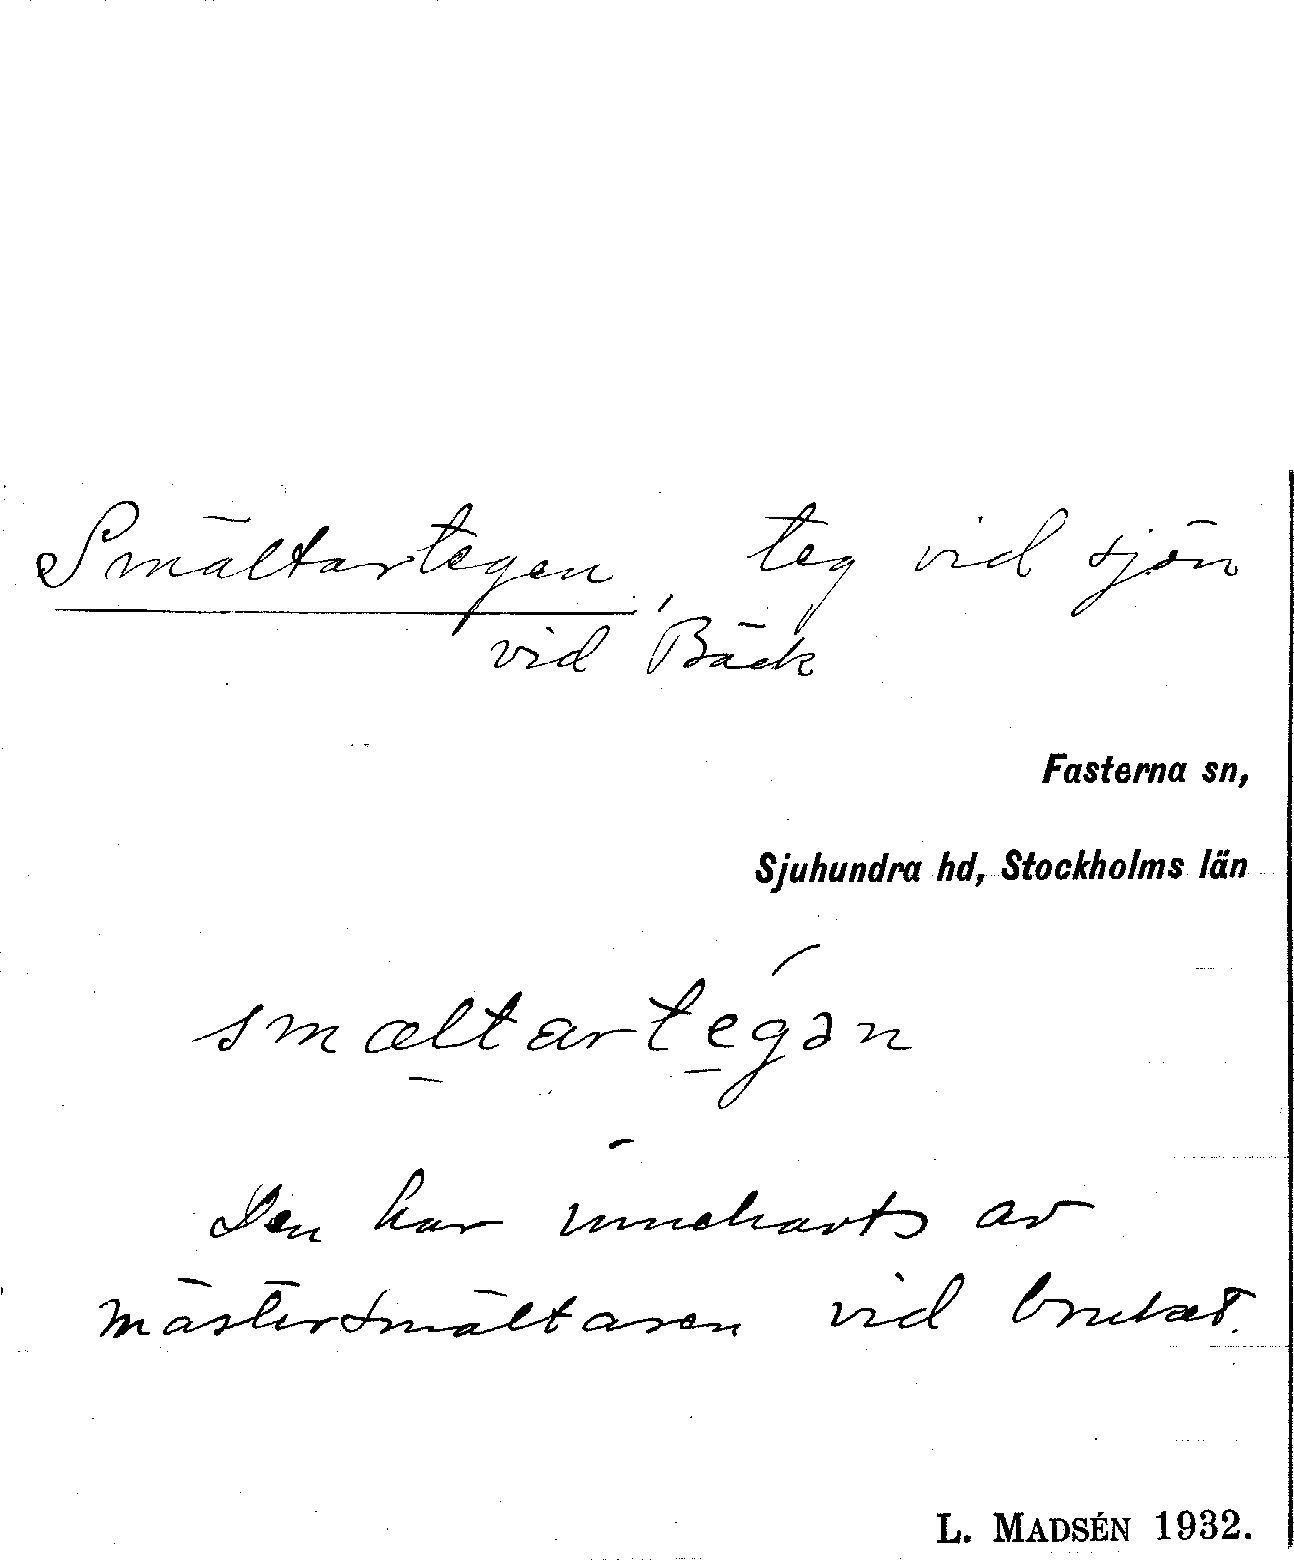 Smältartegen, teg vid sjön
vid Bäck
Fasterna sn,
Sjuhundra hd, Stockholms län
smæltartégən
Den har innehavts av
mästersmältaren vid bruket.
L. MADSÉN 1932.